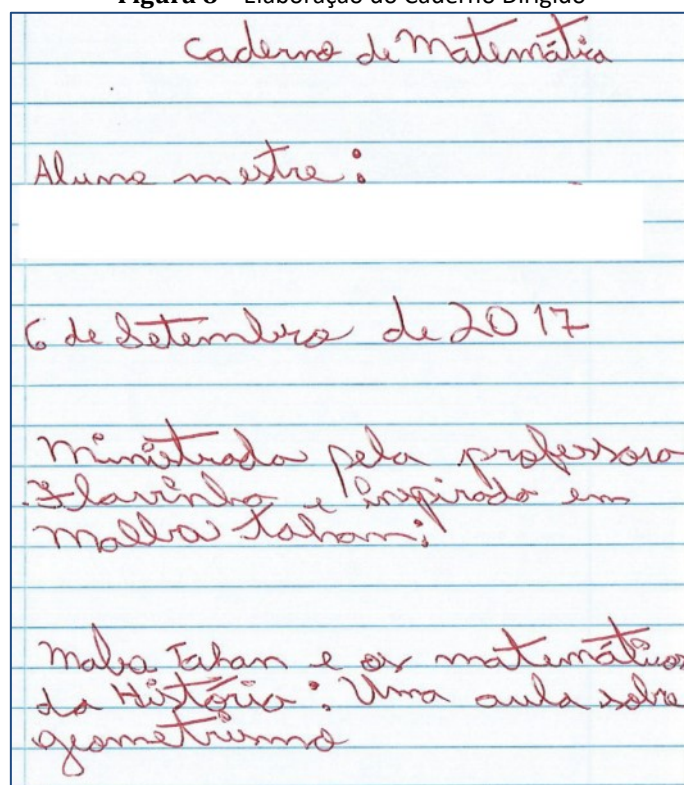 Figura 8 – Elaboração do Caderno Dirigido
Caderno de Matemática
Aluno mestre:
6 de Setembro de 2017
Ministrada pela professora
Flavinha e inspirada em
Malba Tahan:
Malba Tahan e os matemáticos
da História: Uma aula sobre
geometrismo